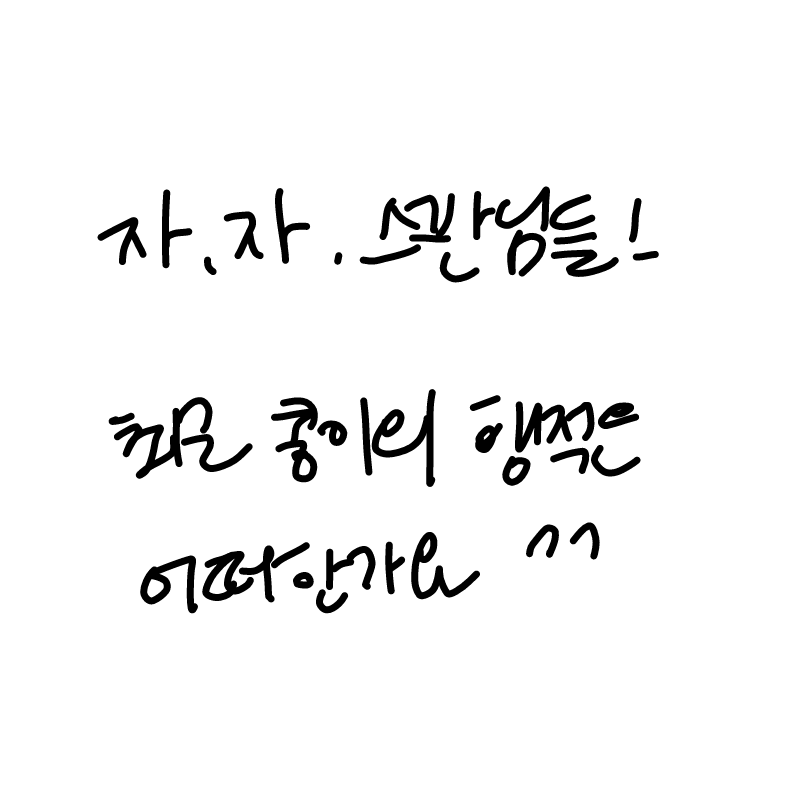 자, 자. 스판님들!
최근 콩이의 행적은
어떠한가요 ^^